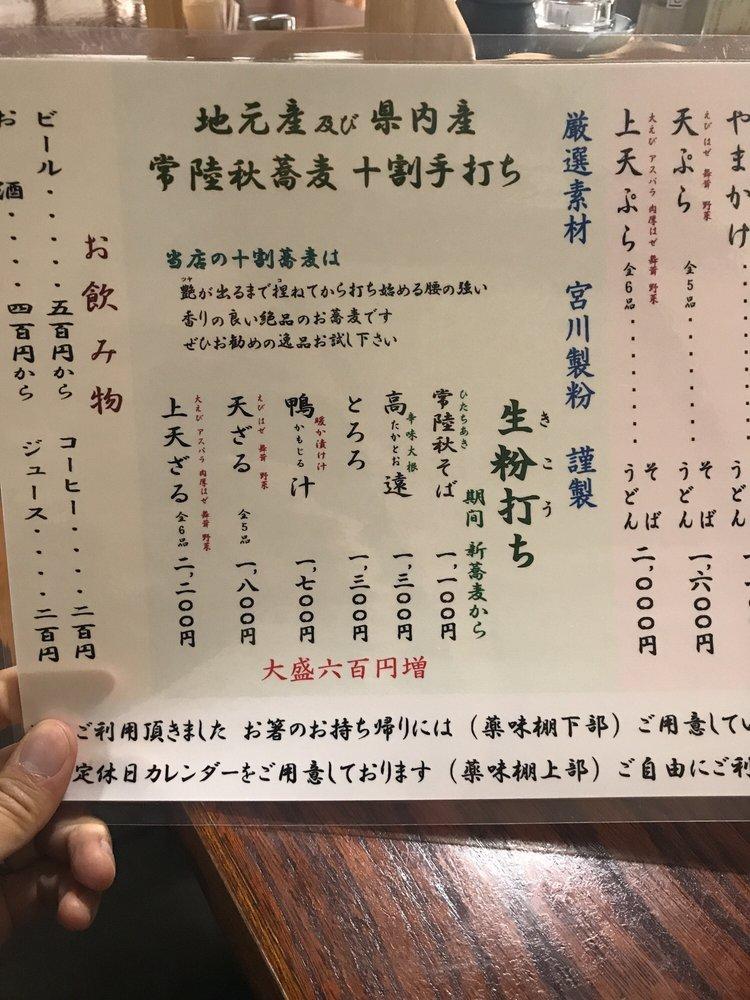 やまかけ・・・・・・・・
そば
うどん
えび はぜ 舞茸 野菜
天ぷら 全5品・・・・・・・
そば
うどん
一、六〇〇円
大えび アスパラ 肉厚はぜ 舞茸 野菜
上天ぷら 全6品・・・・・・・
そば
うどん
二、〇〇〇円
厳選素材 宮川製粉 謹製
地元産及び県内産
常陸秋蕎麦 十割手打ち
当店の十割蕎麦は
艶が出るまで捏ねてから打ち始める腰の強い
ツヤ
コ
香りの良い絶品のお蕎麦です
ぜひお勧めの逸品お試し下さい
生粉打ち
きこう
期間 新蕎麦から
ひたちあき
常陸秋そば 一、一〇〇円
辛味大根
高遠 一、三〇〇円
たかとお
とろろ 一、三〇〇円
暖か漬け汁
鴨汁 一、七〇〇円
かもじる
えび はぜ 舞茸 野菜
天ざる 全5品 一、八〇〇円
大えび アスパラ 肉厚はぜ 舞茸 野菜
上天ざる 全6品 二、二〇〇円
大盛六百円増
お飲み物
ビール・・・・・五百円から
お酒・・・・・四百円から
コーヒー・・・・二百円
ジュース・・・・二百円
ご利用頂きました お箸のお持ち帰りには（薬味棚下部）ご用意してい
定休日カレンダーをご用意しております（薬味棚上部）ご自由にご利